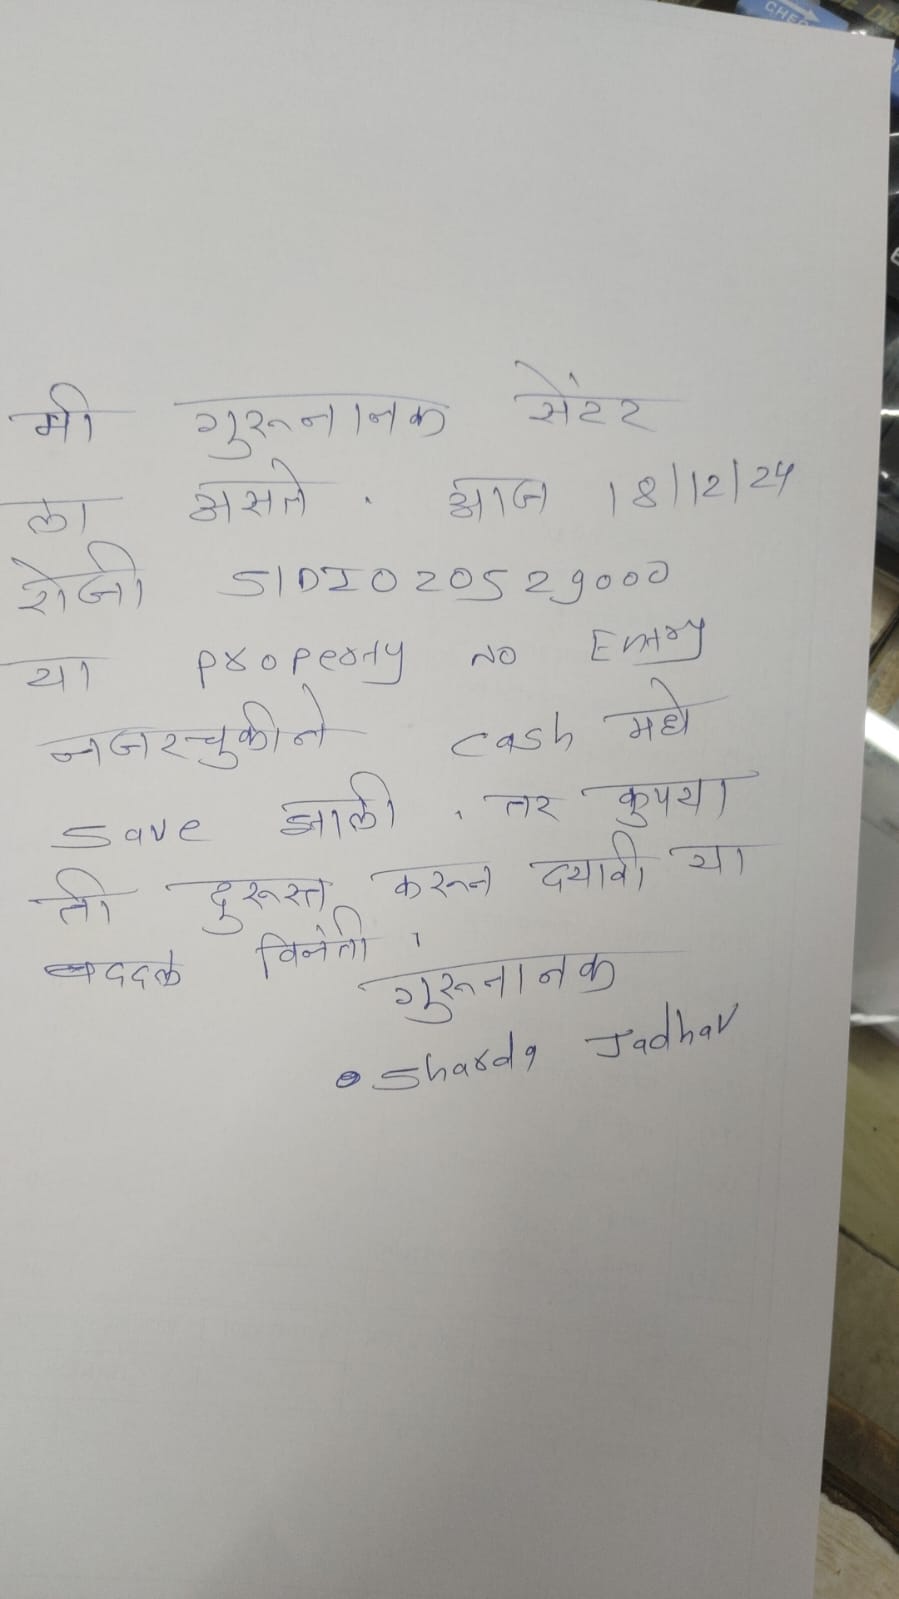 मी गुरूनानक सेंटर
ला असते . आज 18/12/24
रोजी SIDI020529000
या property no Entry
नजरचुकीने cash मधे
save झाली . तर कुपया
ती दुरूस्त करून दयावी या
बददल विनंती ।
गुरूनानक
Sharda Jadhav